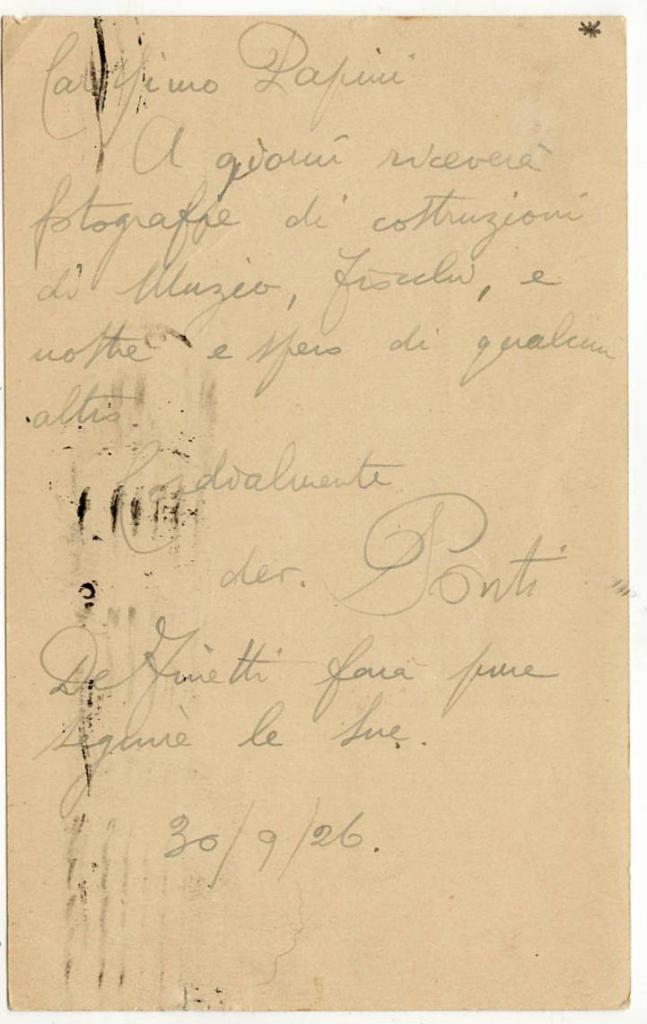 Carissimo Papini
A giorni riceverà
fotografie di costruzioni
di Muzio, Fiocchi, e
nostre e spero di qualcun
altro.
Cordialmente
dev. Ponti
De Finetti farà pure
seguire le sue.
30/9/26.